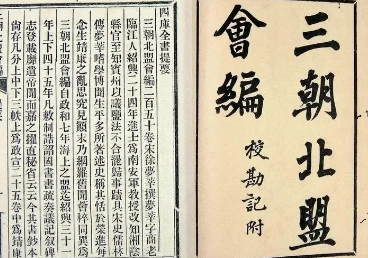 三朝北盟
會編
校勘記附
四庫全書提要
三朝北盟會編二百五十卷宋徐夢莘撰夢莘字商老
臨江人紹興二十四年進士爲南安軍教授改知湘陰
縣官至知賓州以議鹽法不合罷歸事蹟具宋史儒林
傳夢莘嗜學博聞生平多所著述史稱其恬於榮進每
念生靖康之亂思究見顛末乃網羅舊聞薈稡同異爲
三朝北盟會編自政和七年海上之盟迄紹興三十一
年上下四十五年凡敕制誥詔國書書疏奏議記叙碑
志登載靡遺帝聞而嘉之擢直秘省云云今其書鈔本
尚存凡分上中下三帙上爲政宣二十五卷中爲靖康